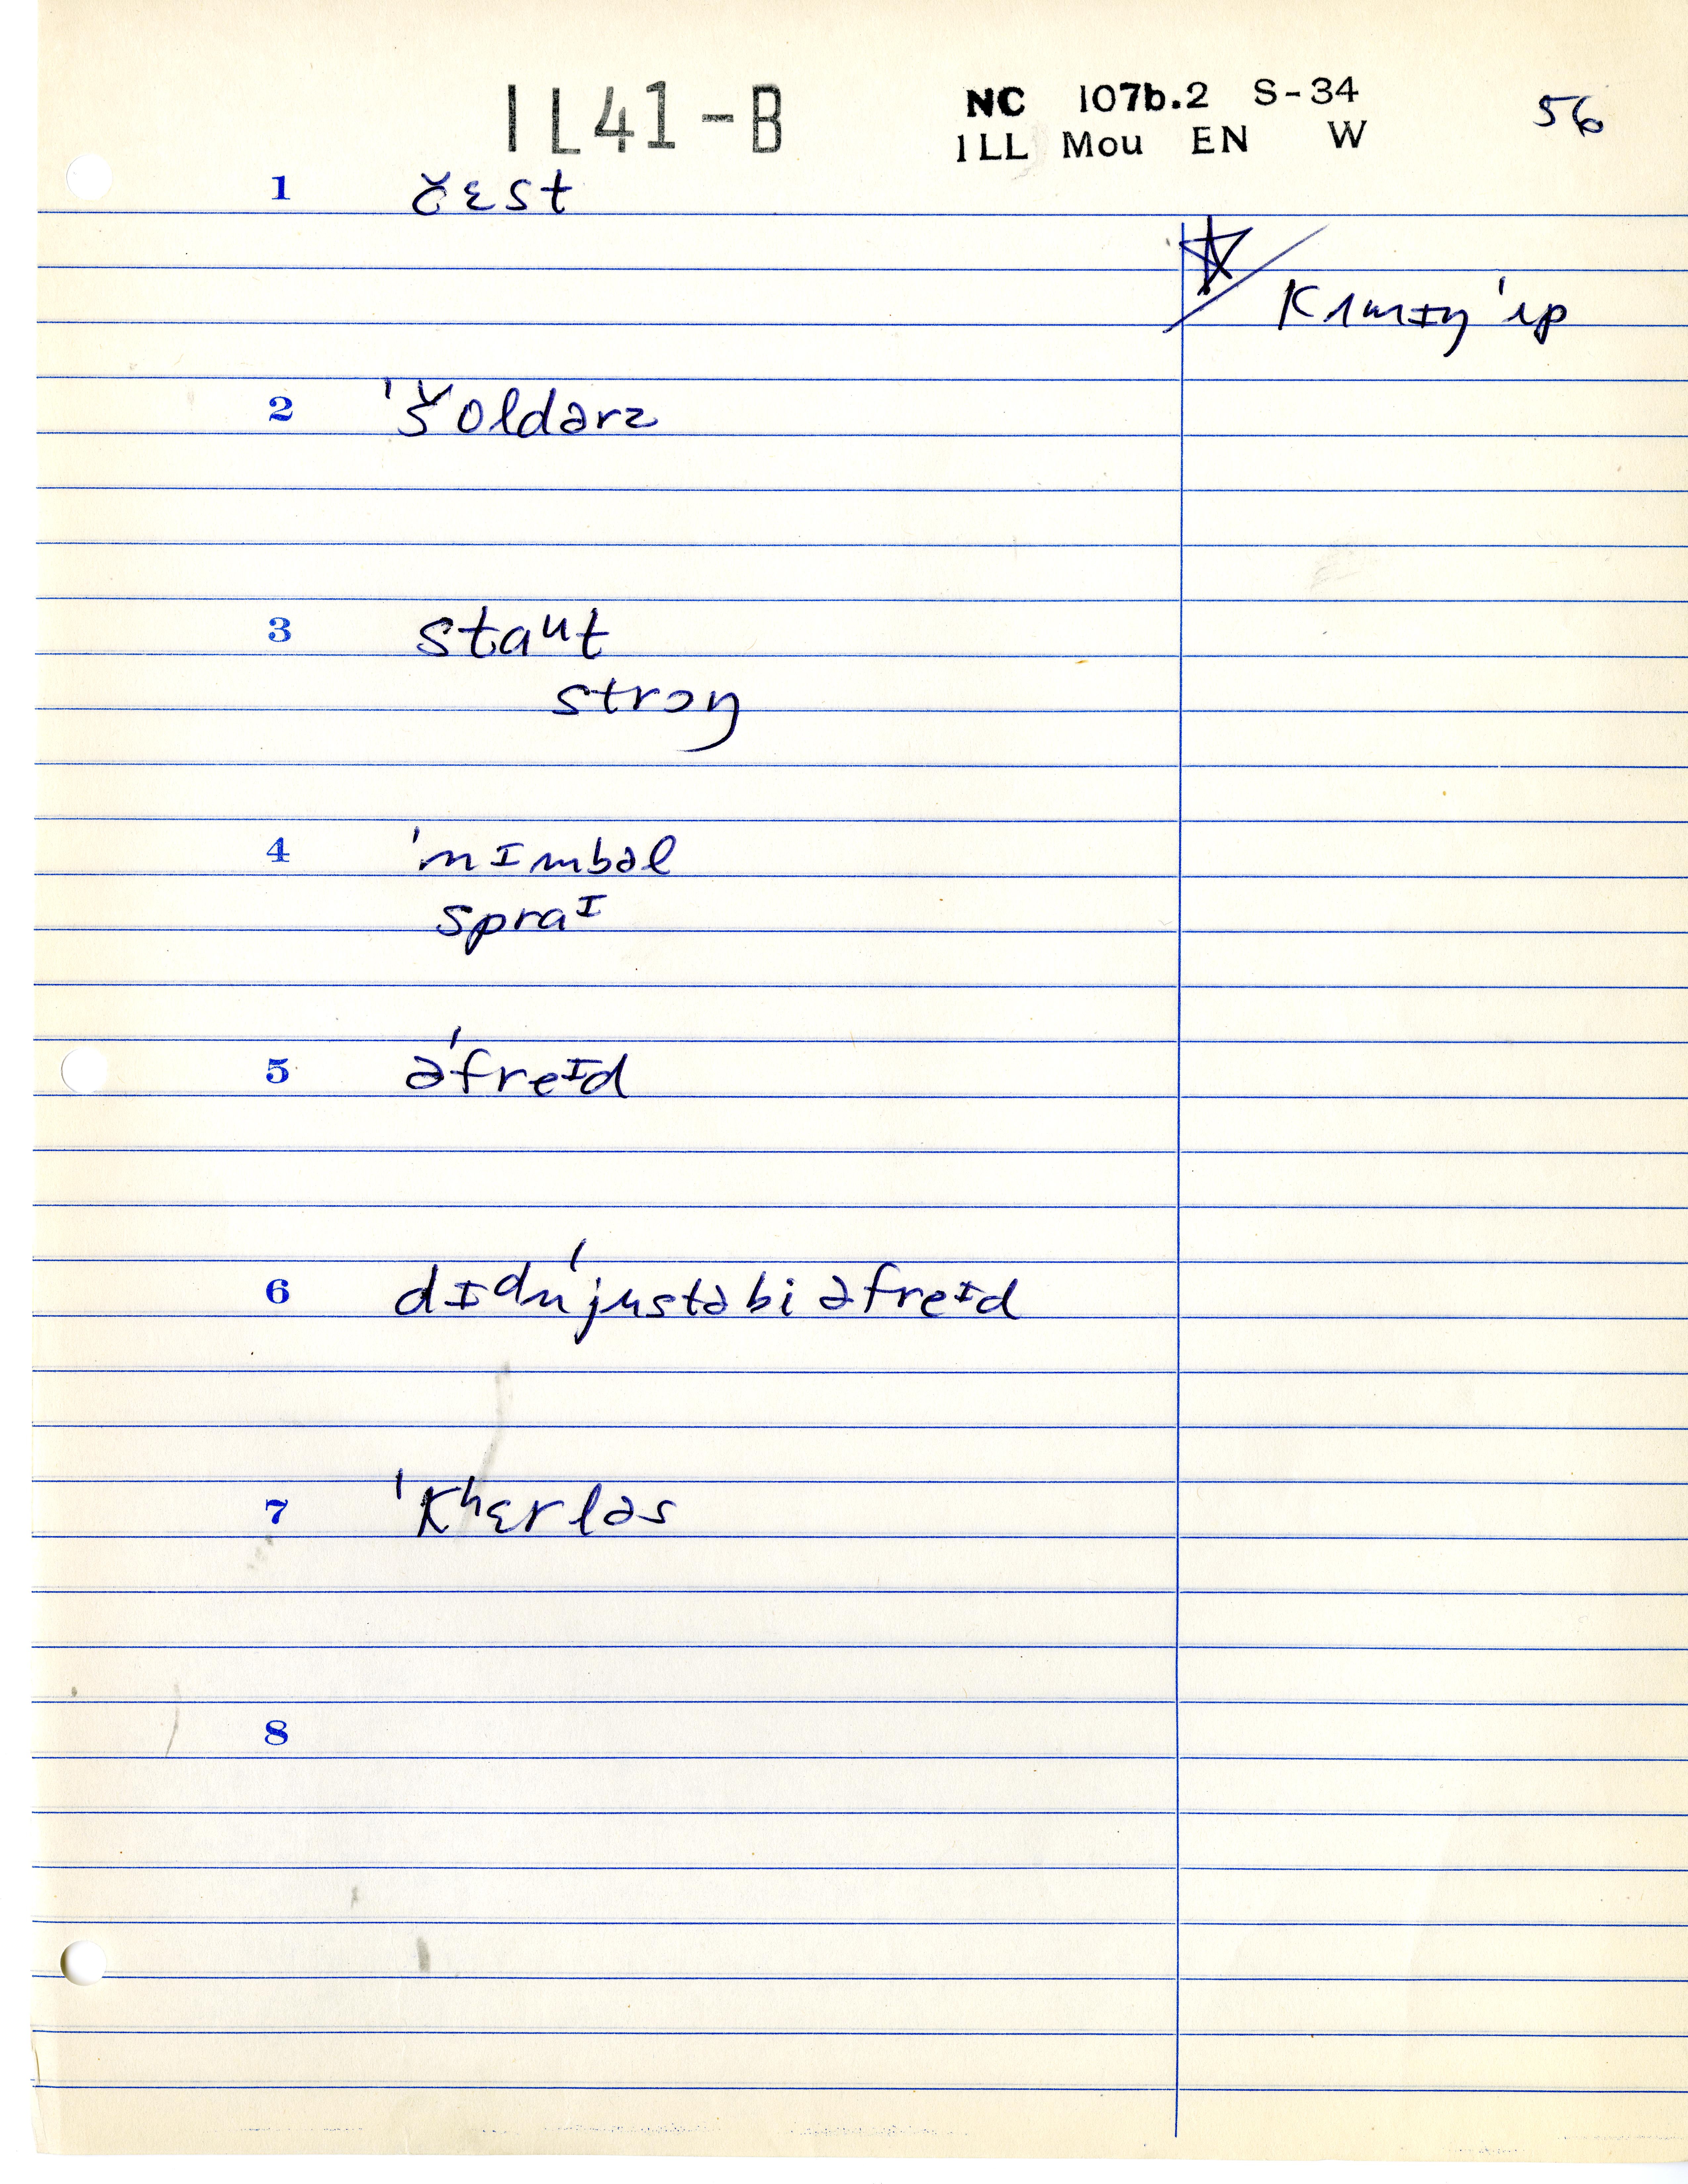 IL41-B
NC 107b.2 S-34
ILL Mou EN W
56
1 čɛst
kʌmɪŋ 'ɪp
2 'šoldərz
3 staᵘt
strɔŋ
4 'nɪmbəl
spraᶦ
5 ə'freᶦd
6 dɪdn'justəbi əfreᶦd
7 'kʰɛrləs
8